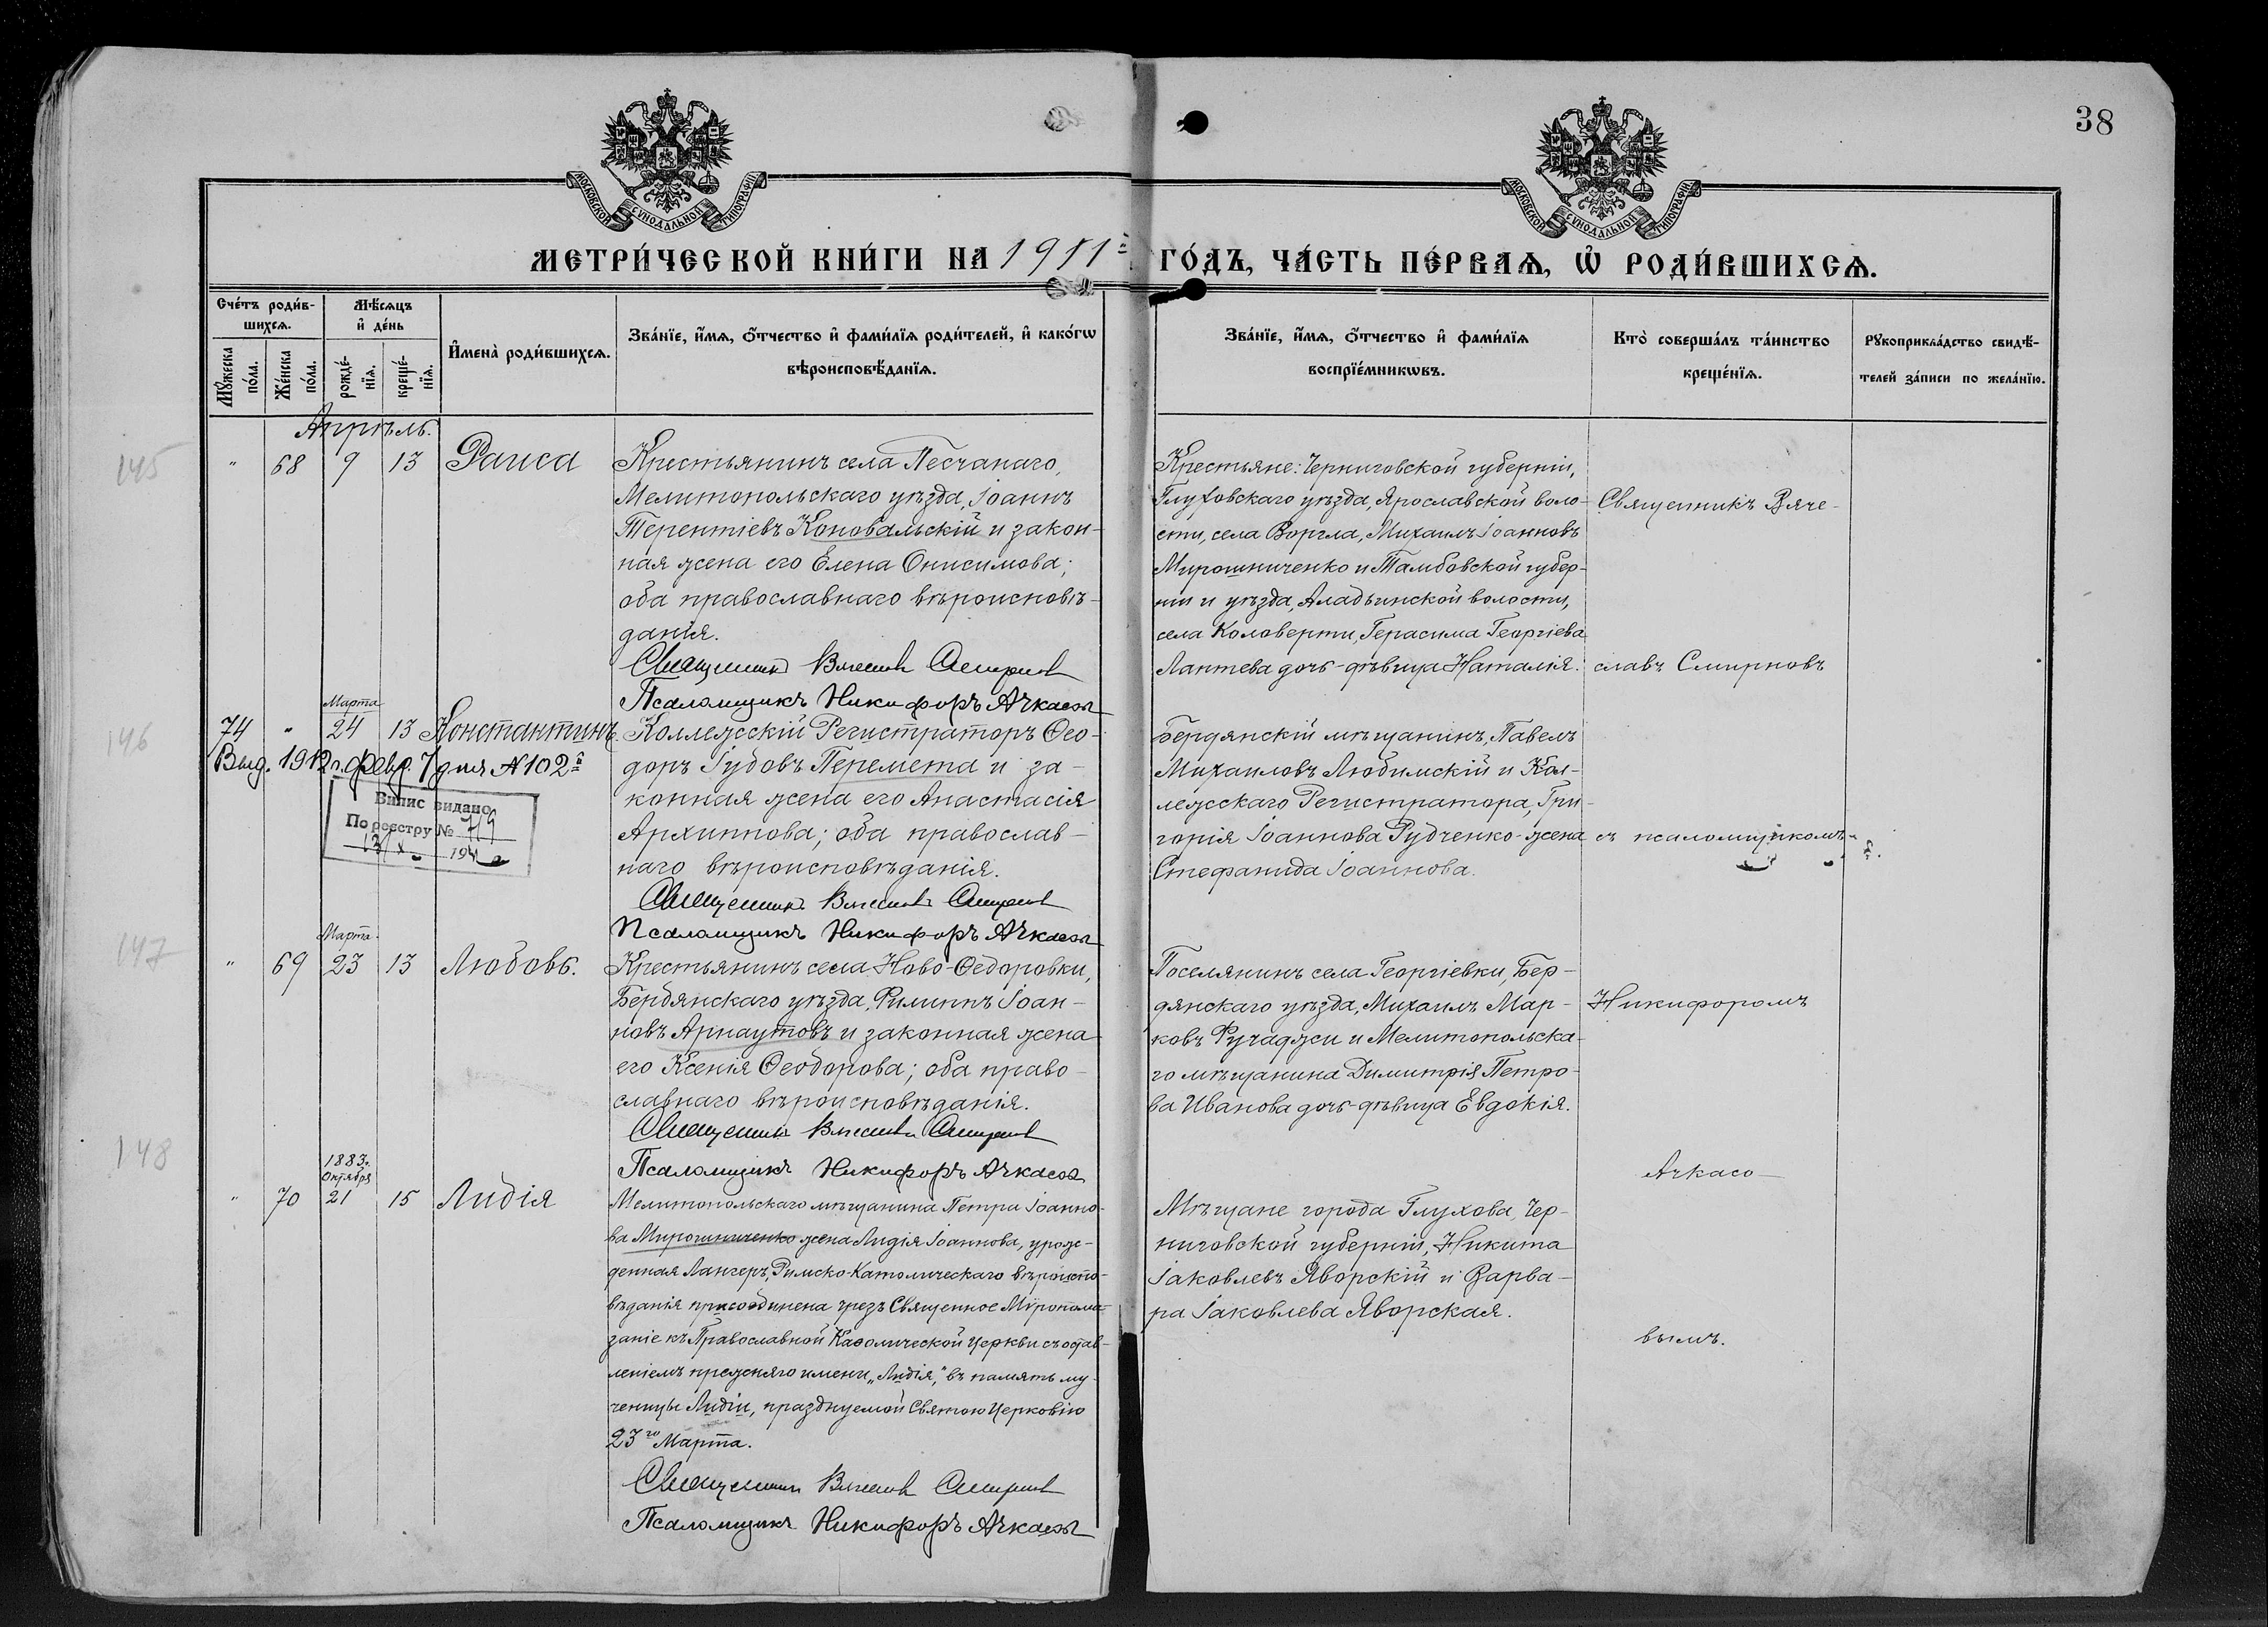 38
МОСКОВСКОЙ СУНОДАЛЬНОЙ ТИПОГРАФІИ
МОСКОВСКОЙ СУНОДАЛЬНОЙ ТИПОГРАФІИ
МЕТРИ́ЧЕСКОЙ КНИ́ГИ НА 1911й ГО́ДЪ, ЧА́СТЬ ПЕ́РВАѦ, Ѡ҆ РОДИ́ВШИХСѦ.
Сче́тъ роди́в-
шихсѧ.
Мꙋ́жеска по́ла.
Же́нска по́ла.
Мѣ́сѧцъ
и҆ де́нь
рожде́-
нїѧ.
креще́-
нїѧ.
И҆мена̀ роди́вшихсѧ.
Зва́нїе, и҆́мѧ, ѻ҆́тчество и҆ фами́лїѧ роди́телей, и҆ како́гѡ
вѣроисповѣ́данїѧ.
Зва́нїе, и҆́мѧ, ѻ҆́тчество и҆ фами́лїѧ
воспрїе́мникѡвъ.
Кто̀ соверша́лъ та́инство
креще́нїѧ.
Рꙋкоприкла́дство свидѣ́-
телей за́писи по жела́нїю.
Апрѣль.
145
" 68 9 13 Раиса
Крестьянинъ села Песчанаго,
Мелитопольскаго уѣзда, Іоаннъ
Терентіевъ Коновальскій и закон-
ная жена его Елена Онисимова;
оба православнаго вѣроисповѣ-
данія.
Священникъ Вячеславъ Смирновъ
Псаломщикъ Никифоръ Ачкасов
Крестьяне: Черниговской губерніи,
Глуховскаго уѣзда, Ярославской воло-
сти, села Воргла, Михаилъ Іоанновъ
Мирошниченко и Тамбовской губер-
ніи и уѣзда, Аладьинской волости,
села Коловерти, Герасима Георгіева
Лаптева дочь-дѣвица Наталія.
Священникъ Вяче-
славъ Смирновъ
146
Марта
74 " 24 13 Константинъ
Выд. 1912 г. февр. 7 дня № 102й
Випис видано
По реестру № 719
13/X 194
Коллежскій Регистраторъ Ѳео-
доръ Іудовъ Перемета и за-
конная жена его Анастасія
Архиппова; оба православ-
наго вѣроисповѣданія.
Священникъ Вячеславъ Смирновъ
Псаломщикъ Никифоръ Ачкасов
Бердянскій мѣщанинъ, Павелъ
Михаиловъ Любимскій и Кол-
лежскаго Регистратора, Гри-
горія Іоаннова Рудченко-жена
Стефанида Іоаннова.
съ псаломщикомъ
147
Марта
" 69 23 13 Любовь.
Крестьянинъ села Ново-Ѳедоровки,
Бердянскаго уѣзда, Филиппъ Іоан-
новъ Арнаутовъ и законная жена
его Ксенія Ѳеодорова; оба право-
славнаго вѣроисповѣданія.
Священникъ Вячеславъ Смирновъ
Псаломщикъ Никифоръ Ачкасов
Поселянинъ села Георгіевки, Бер-
дянскаго уѣзда, Михаилъ Мар-
ковъ Ручаджи и Мелитопольска-
го мѣщанина Димитрія Петро-
ва Иванова дочь-дѣвица Евдокія.
Никифоромъ
Ачкасо-
148
1883 г.
Октября
" 70 21 15 Лидія
Мелитопольскаго мѣщанина Петра Іоанно-
ва Мирошниченко жена Лидія Іоаннова, урож-
денная Лангеръ, Римско-Католическаго вѣроиспо-
вѣданія присоединена чрезъ Священное Мѵропома-
заніе къ Православной Каѳолической Церкви съ остав-
леніемъ прежняго имени „Лидія," въ память му-
ченицы Лидіи, празднуемой Святою Церковію
23го Марта.
Священникъ Вячеславъ Смирновъ
Псаломщикъ Никифоръ Ачкасов
Мѣщане города Глухова, Чер-
ниговской губерніи, Никита
Іаковлевъ Яворскій и Варва-
ра Іаковлева Яворская.
вымъ.